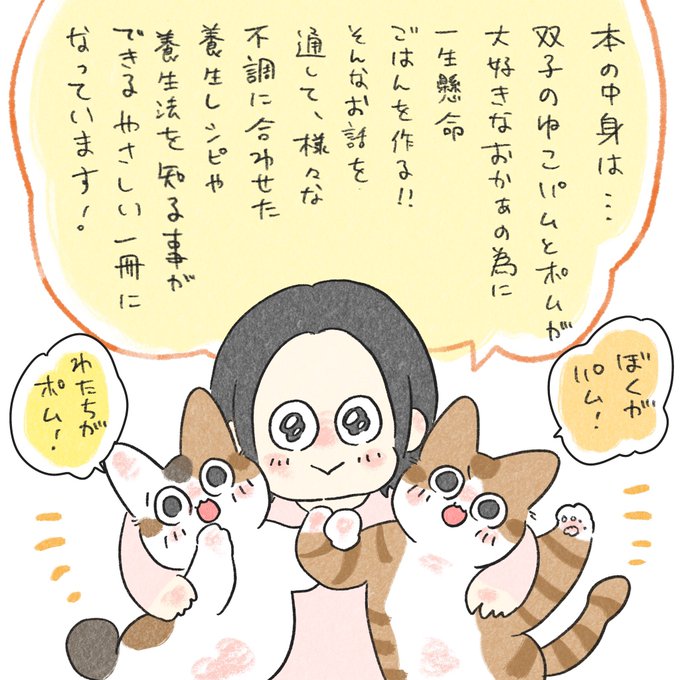 本の中身は…
双子のねこパムとポムが
大好きなおかぁの為に
一生懸命
ごはんを作る!!
そんなお話を
通して、様々な
不調に合わせた
養生レシピや
養生法を知る事が
できるやさしい一冊に
なっています!。
ぼくが
パム!
わたちが
ポム!